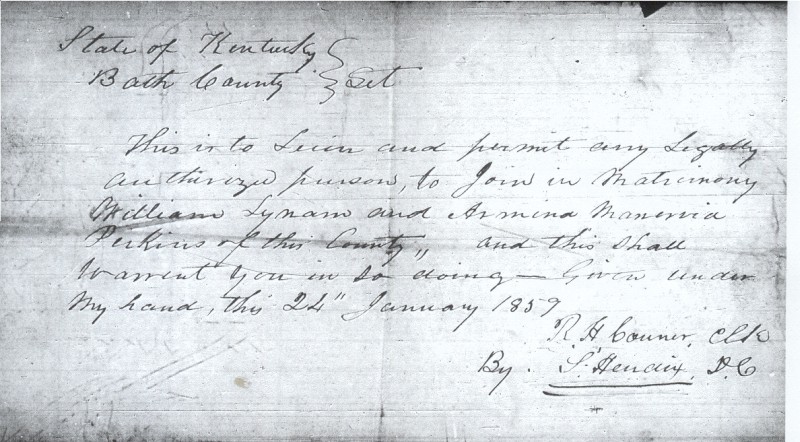 State of Kentucky }
Bath County } Sct
This is to Licen and permit any Legally
authorized person, to Join in Matrimony
William Lynam and Armind Manervia
Perkins of this County,, and this Shall
Warrent you in so doing — Given under
My hand, this 24" January 1859
R. H. Conner, Clk
By. S. Hendix, D.C